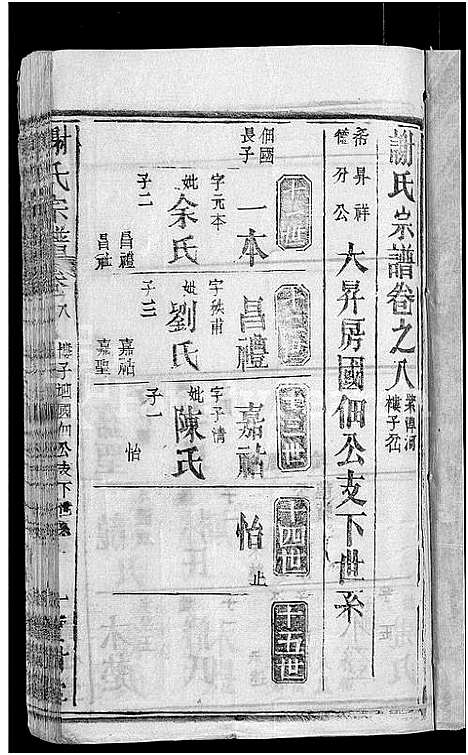 謝氏宗譜卷之八
樓子岔
希昇祥
大昇房國佃公支下世系
十一世
十二世
十三世
十四世
十五世
佃國長子
一本
字元本
妣余氏
子二
昌禮
昌祉
昌禮
字秩甫
妣劉氏
子三
嘉祜
嘉聖
嘉祜
字子清
妣陳氏
子一
怡
怡
止
謝氏宗譜
卷八
樓子
國佃公支下世系